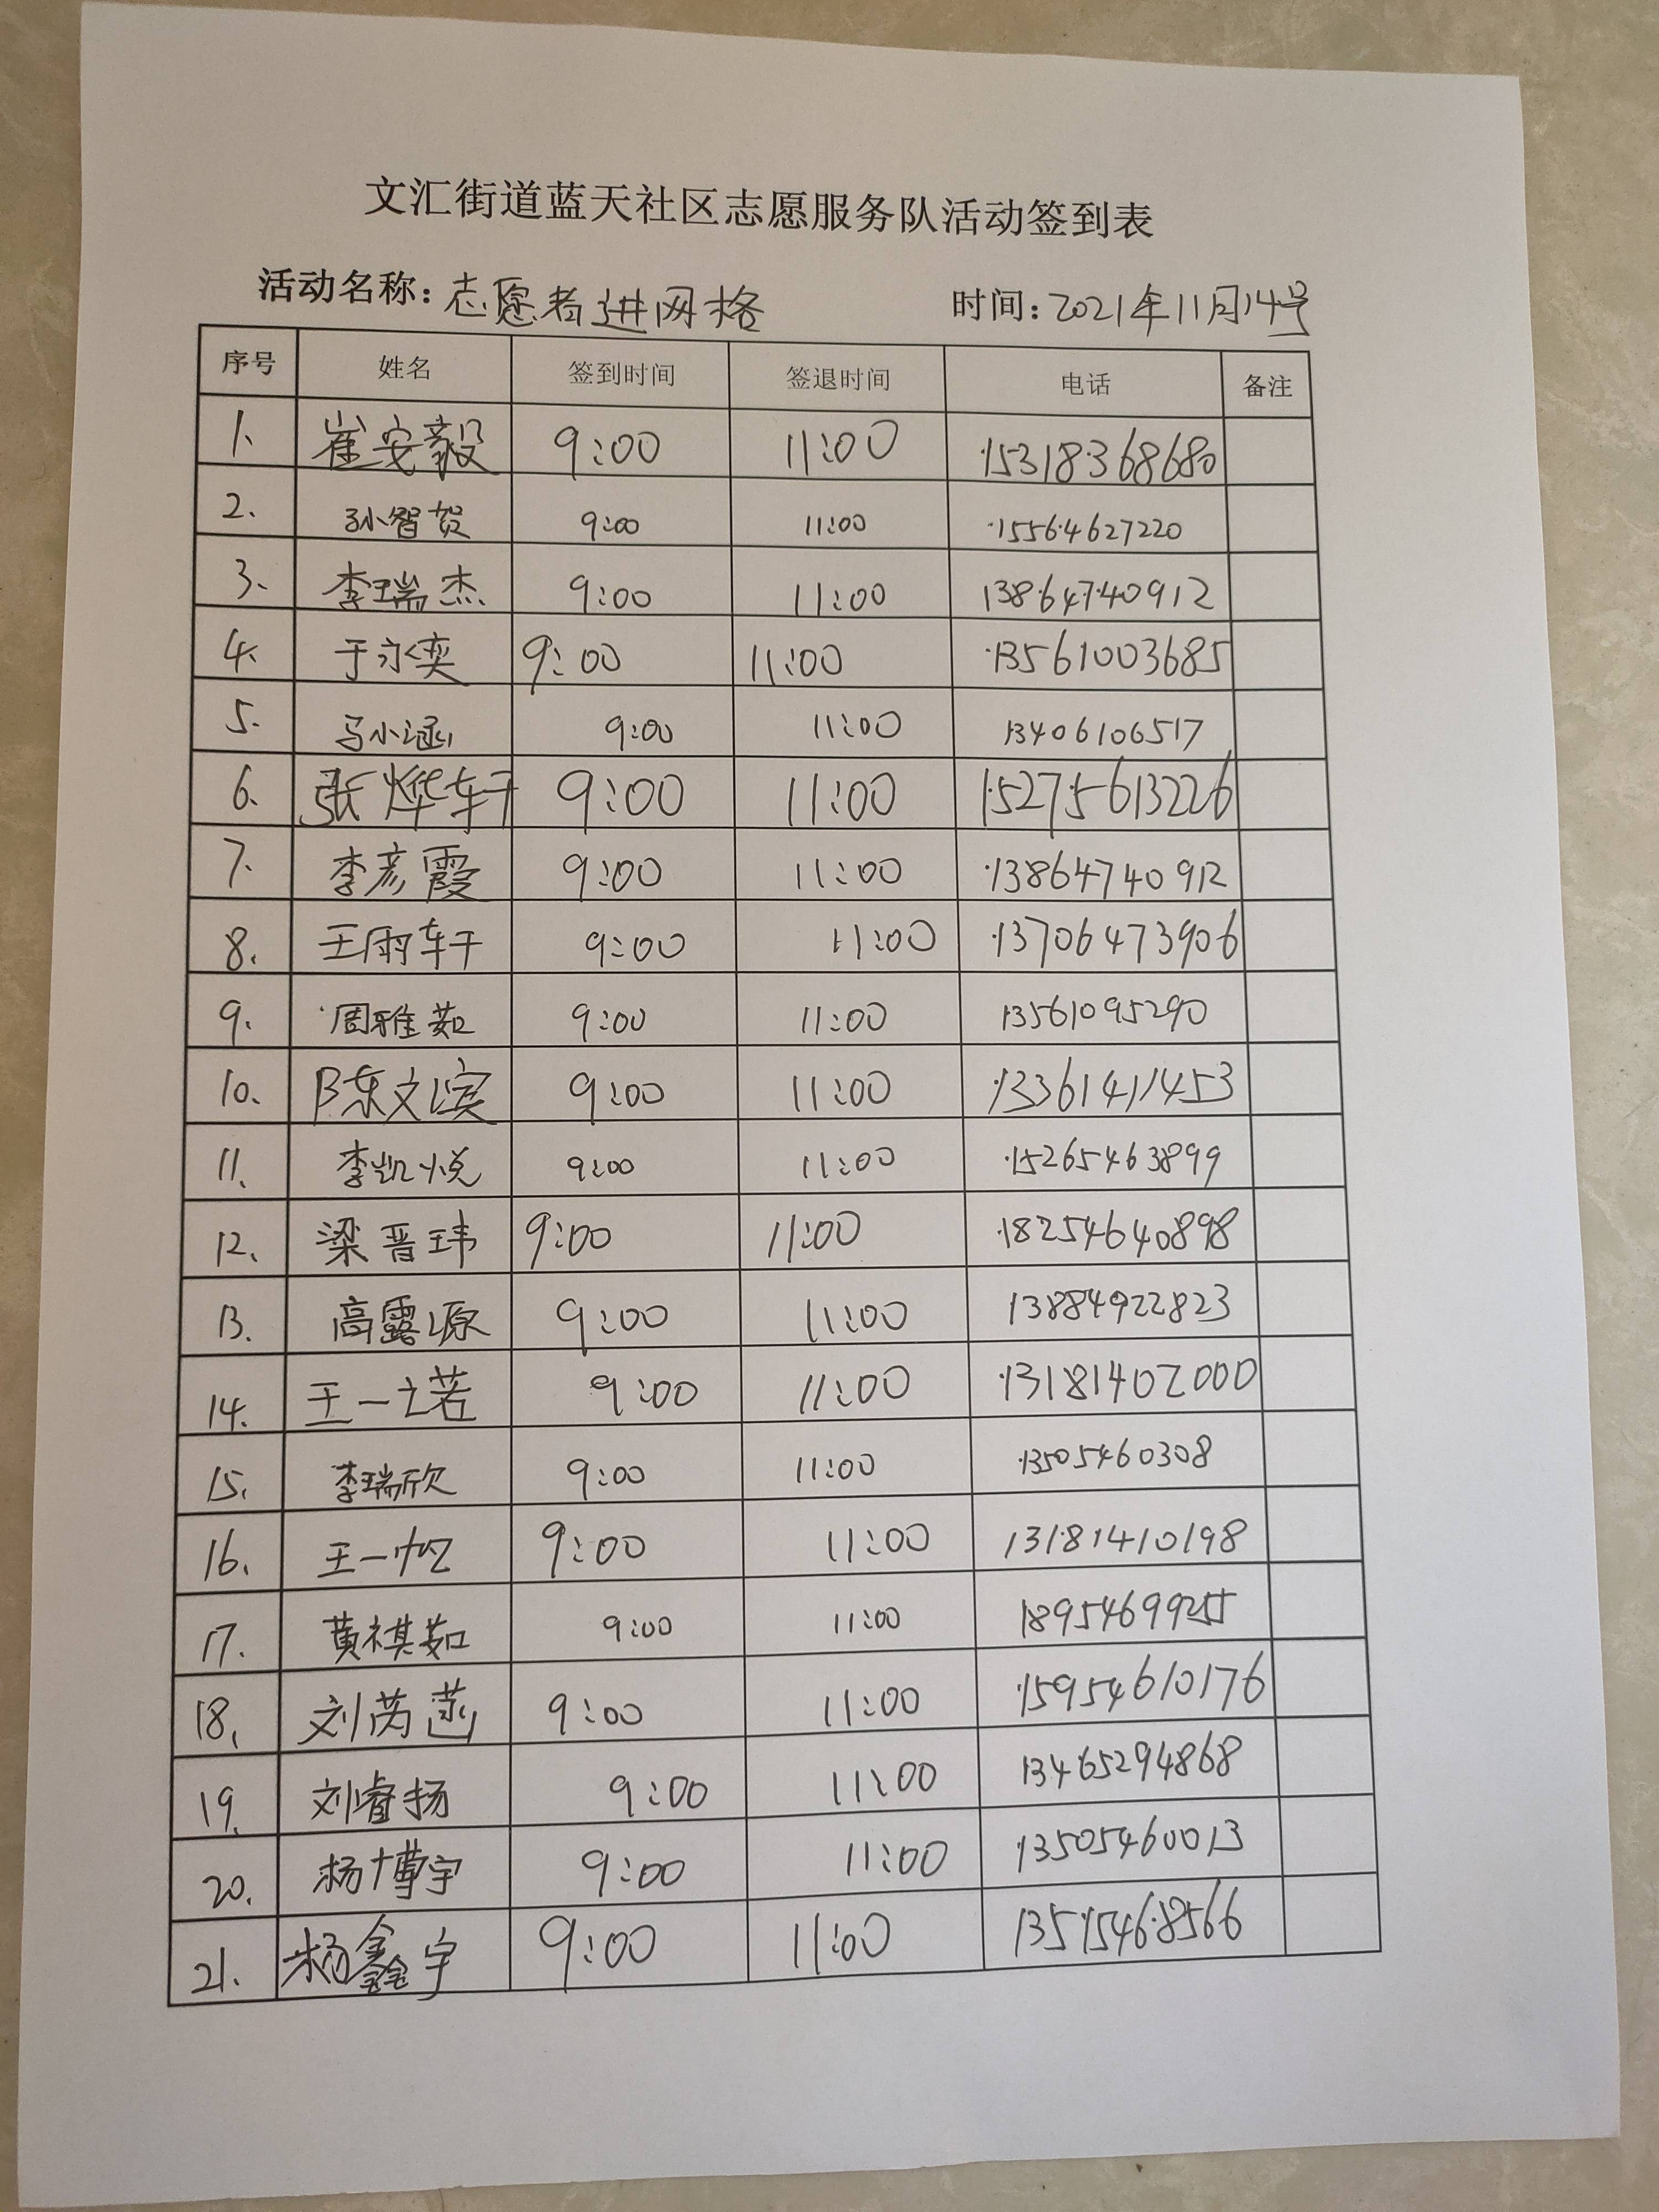 文汇街道蓝天社区志愿服务队活动签到表
活动名称：志愿者进网格 时间：2021年11月14号
序号 姓名 签到时间 签退时间 电话 备注
1、 崔安毅 9:00 11:00 15318368680
2、 孙智贺 9:00 11:00 15564627220
3、 李瑞杰 9:00 11:00 13864740912
4、 于永奕 9:00 11:00 13561003685
5、 马小涵 9:00 11:00 13406106517
6、 张烨轩 9:00 11:00 15275613226
7、 李彦霞 9:00 11:00 13864740912
8、 王雨轩 9:00 11:00 13706473906
9、 周雅茹 9:00 11:00 13561095290
10、 陈文滨 9:00 11:00 13361411453
11、 李凯悦 9:00 11:00 15265463899
12、 梁晋玮 9:00 11:00 18254640898
13、 高露源 9:00 11:00 13884922823
14、 王一之若 9:00 11:00 13181402000
15、 李瑞欣 9:00 11:00 13505460308
16、 王一忆 9:00 11:00 13181410198
17、 黄祺茹 9:00 11:00 18954699255
18、 刘芮菡 9:00 11:00 15954610176
19、 刘睿扬 9:00 11:00 13465294868
20、 杨博宇 9:00 11:00 13505460013
21、 杨鑫宇 9:00 11:00 13515468566